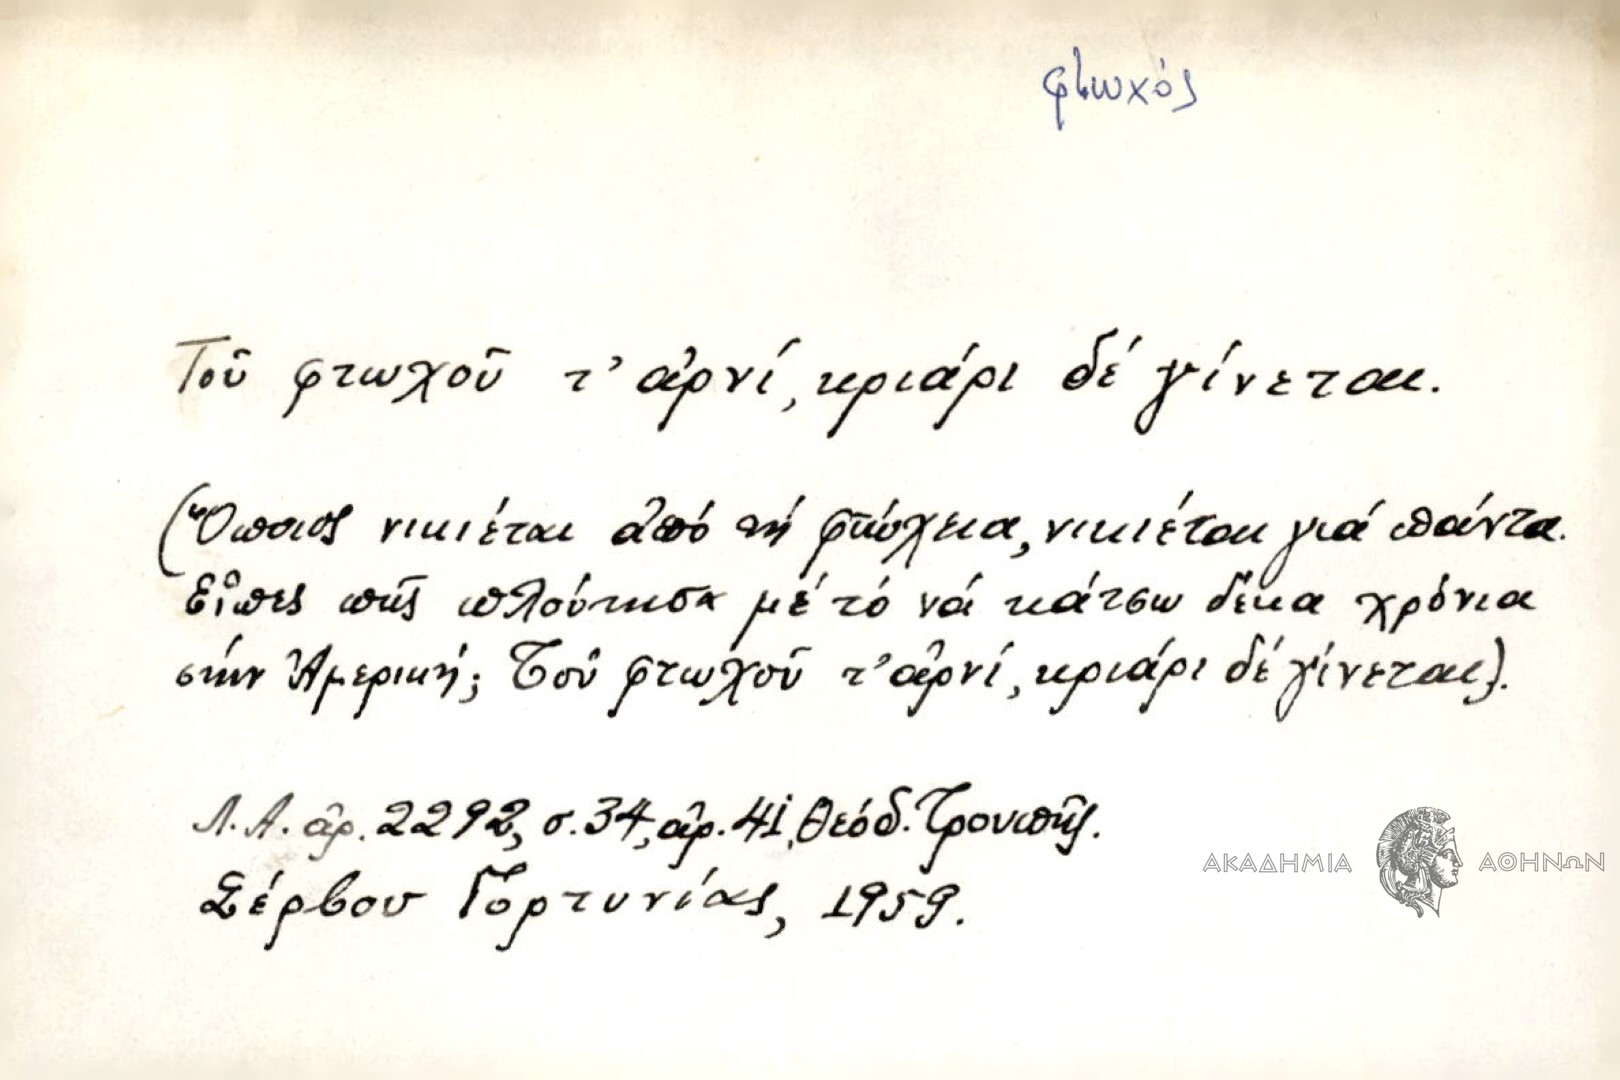 φτωχός
Τοῦ φτωχοῦ τ' ἀρνί, κριάρι δέ γίνεται.
(Ὅποιος νικιέται ἀπό τή φτώχεια, νικιέται γιά πάντα.
Εἶπες πῆς πλούτησα μέ τό νά κάτσω δέκα χρόνια
στήν Ἀμερική; Τοῦ φτωχοῦ τ' ἀρνί, κριάρι δέ γίνεται).
Λ.Α. ἀρ. 2292, σ. 34, ἀρ. 41, Θεόδ. Τρουπῆς.
Σέρβου Γορτυνίας, 1959.
ΑΚΑΔΗΜΙΑ ΑΘΗΝΩΝ